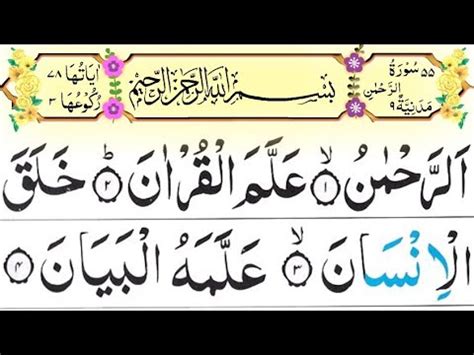 اٰيَاتُهَا ٧٨
رُكُوْعُهَا ٣
بِسْمِ اللّٰهِ الرَّحْمٰنِ الرَّحِيْمِ
٥٥ سُوْرَةُ
الرَّحْمٰنِ
مَدَنِيَّةٌ ٩
اَلرَّحْمٰنُ ۙ ١ عَلَّمَ الْقُرْاٰنَ ؕ ٢ خَلَقَ
الْاِنْسَانَ ۙ ٣ عَلَّمَهُ الْبَيَانَ ٤